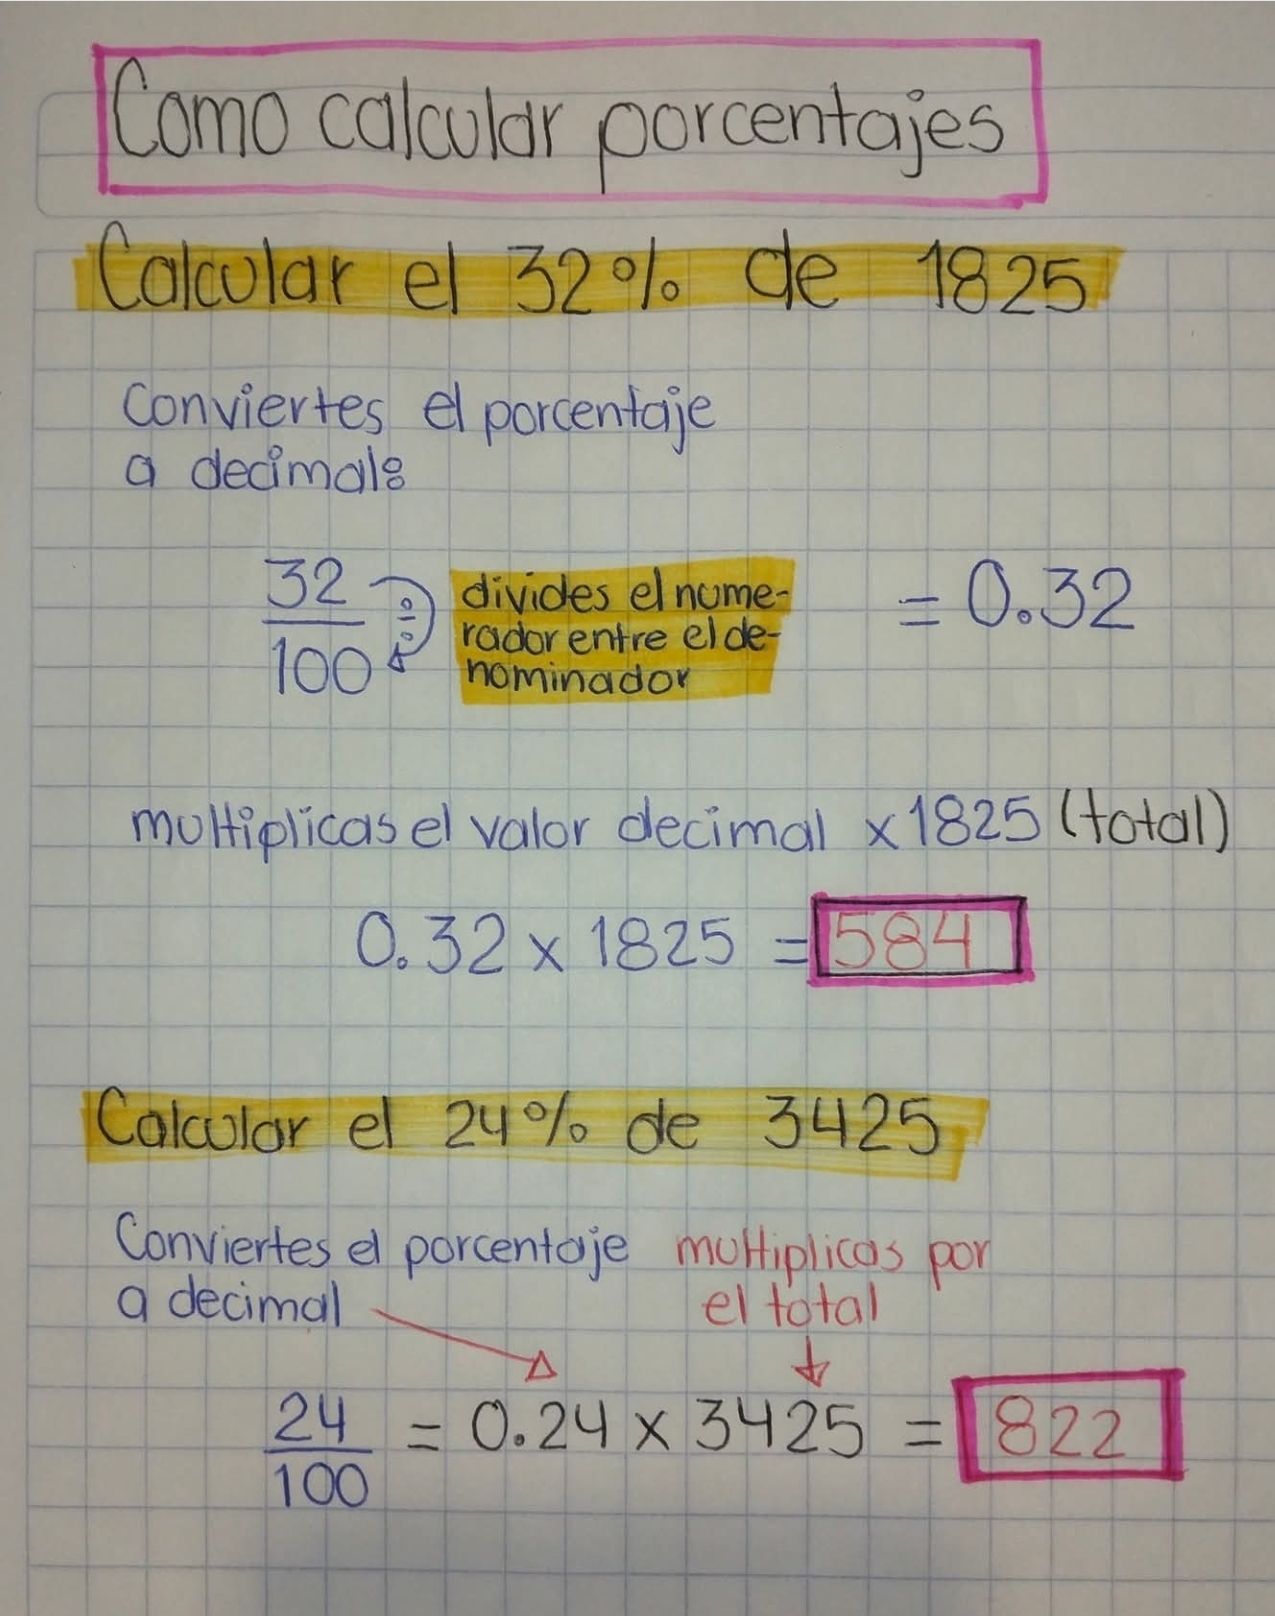 Como calcular porcentajes
Calcular el 32% de 1825
Conviertes el porcentaje
a decimal:
32
100
÷
divides el nume-
rador entre el de-
nominador
= 0.32
multiplicas el valor decimal x 1825 (total)
0.32 x 1825 = 584
Calcular el 24% de 3425
Conviertes el porcentaje
a decimal
multiplicas por
el total
24
100
= 0.24 x 3425 = 822